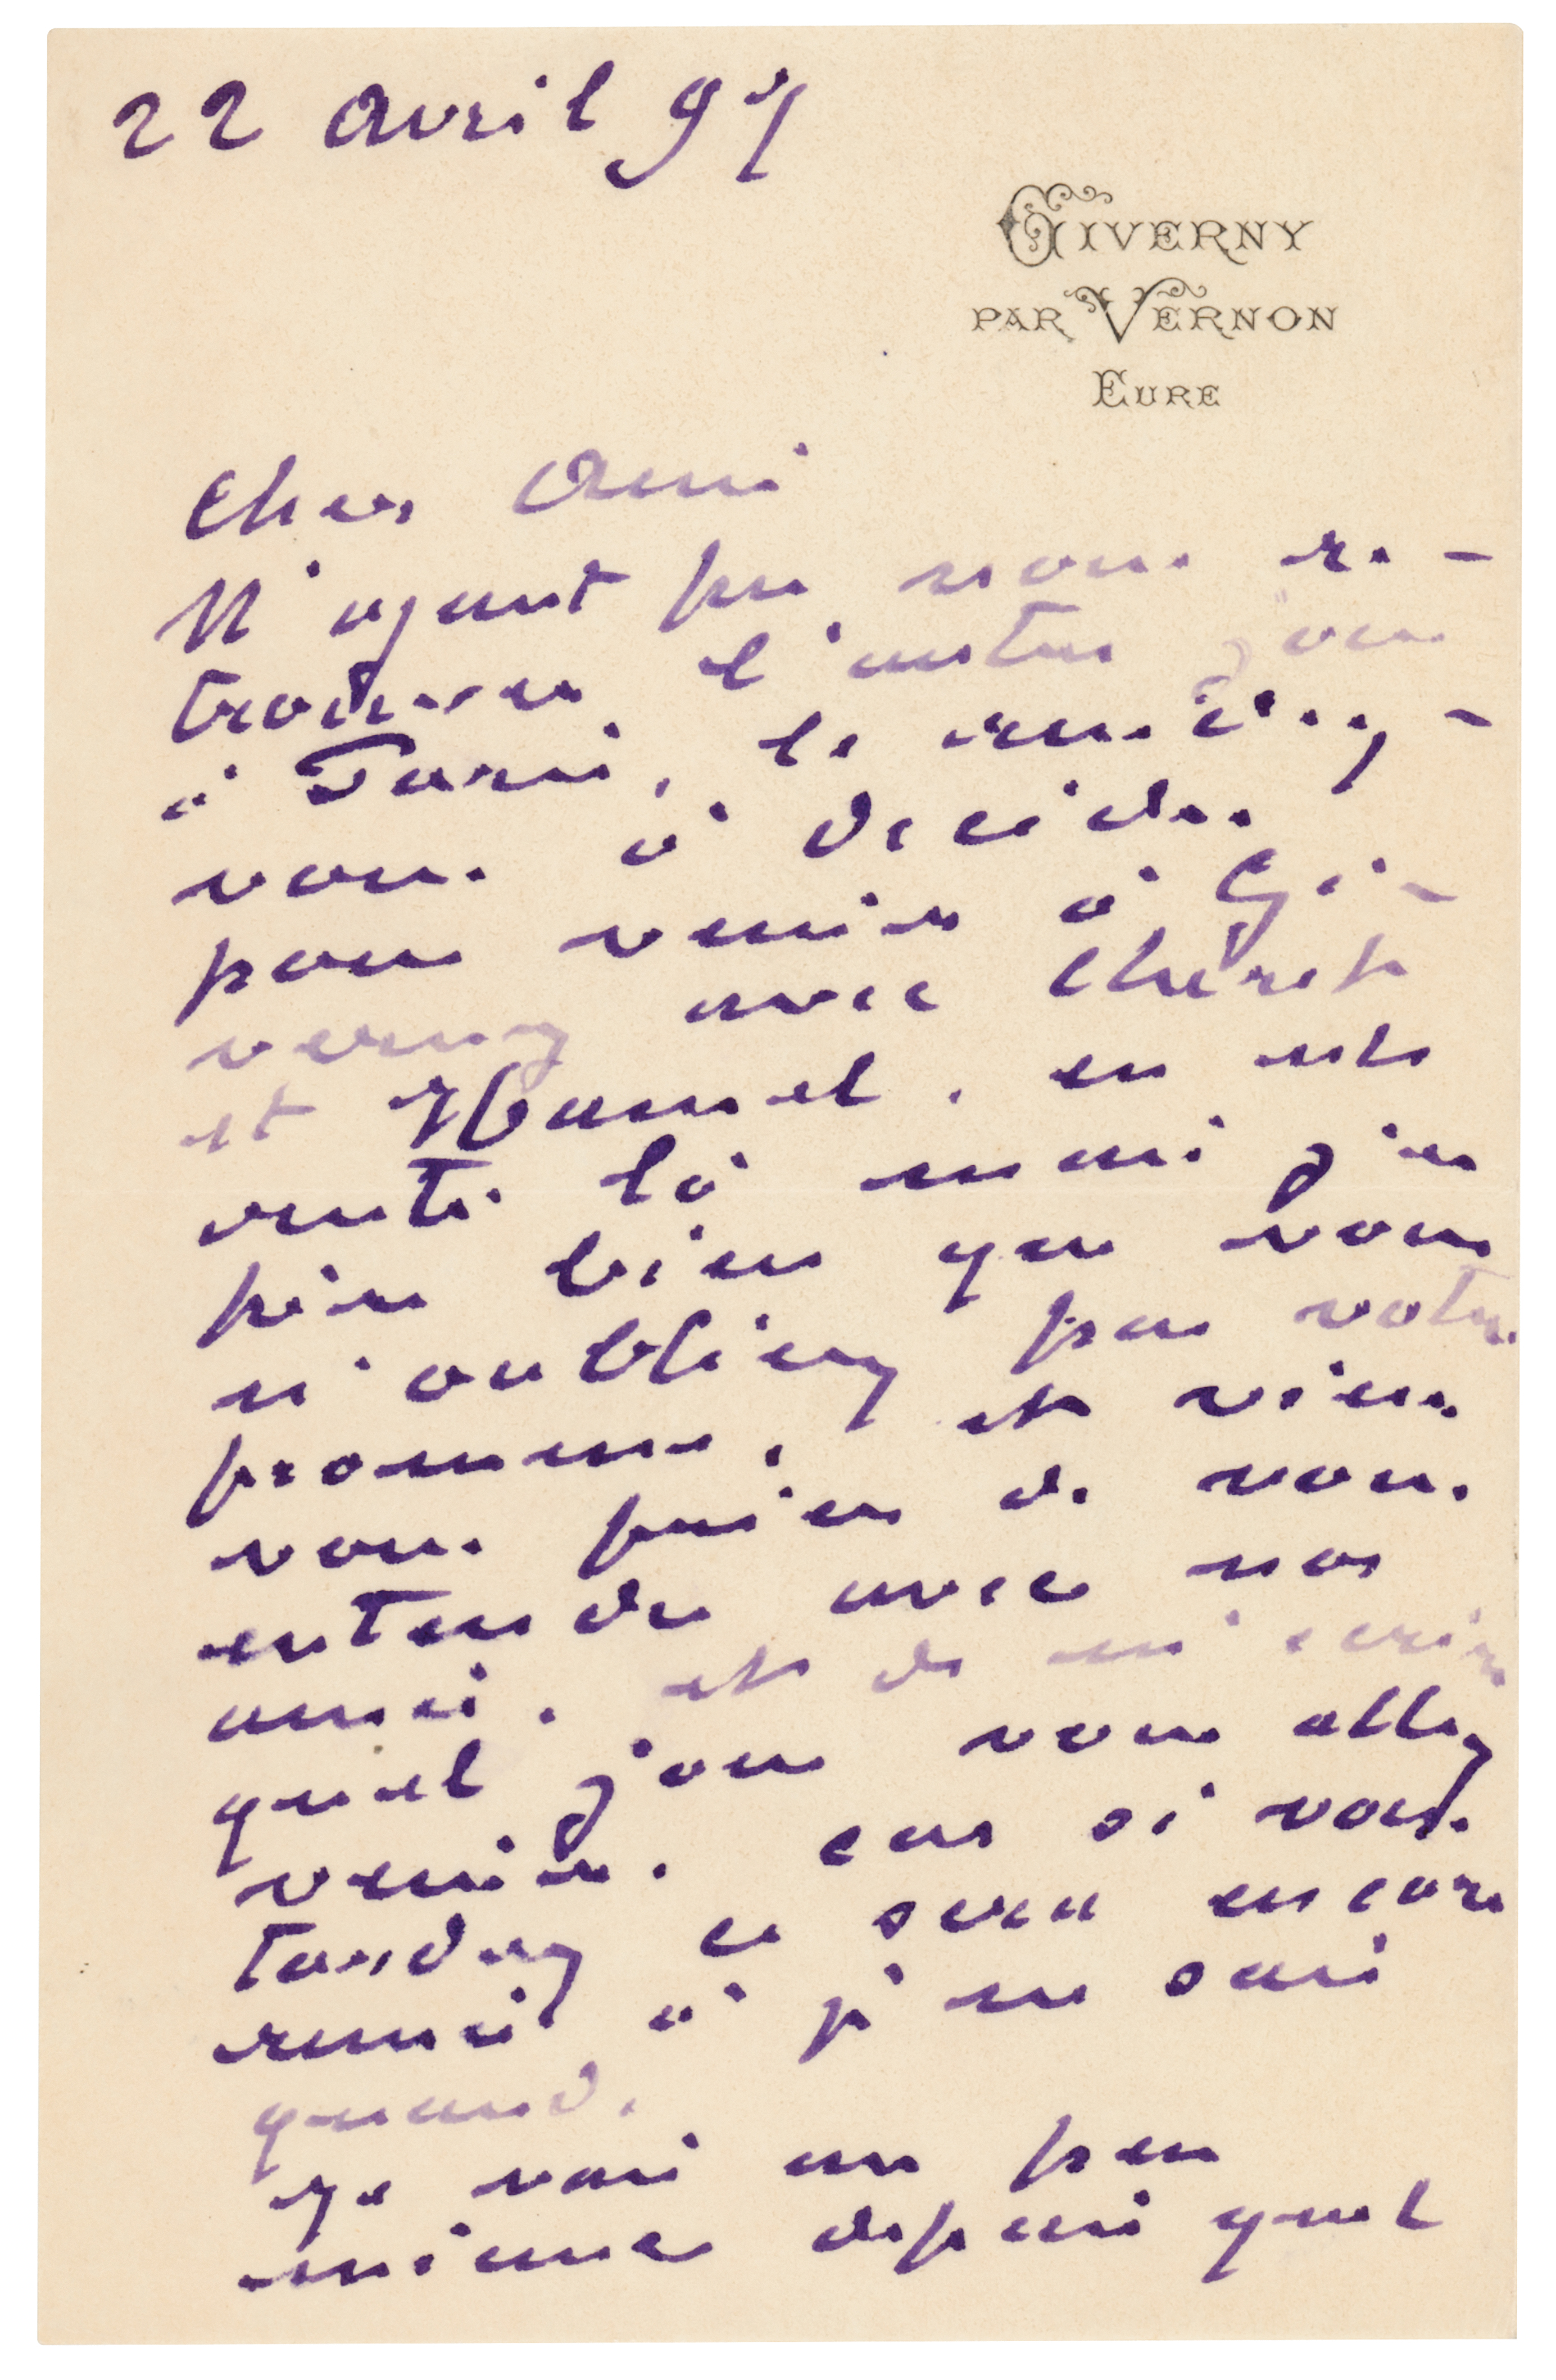 22 avril 97
GIVERNY
PAR VERNON
EURE
Cher Ami
N'ayant pu nous re-
trouver l'autre jour
à Paris, le rendez-
vous à décider
pour venir à Gi-
verny avec Chéret
et Hamel, en est
resté là mais j'es
père bien que vous
n'oubliez pas votre
promesse, et viens
vous prier de vous
entendre avec nos
amis, et de m'écrire
quel jour vous allez
venir. car si vous
tardez ce sera encore
remis à je ne sais
quand.
Je vais un peu
mieux depuis quel